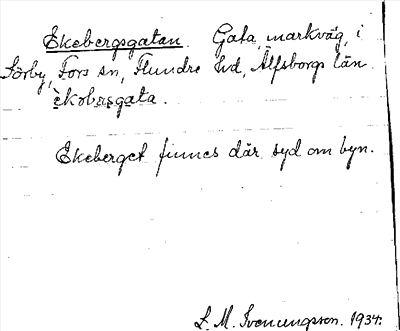 Ekebergsgatan. Gata, markväg, i
Sörby, Fors sn, Flundre hd, Älfsborgs län.
èkobæsgata.
Ekeberget finnes där syd om byn.
L. M. Svenungsson. 1934.